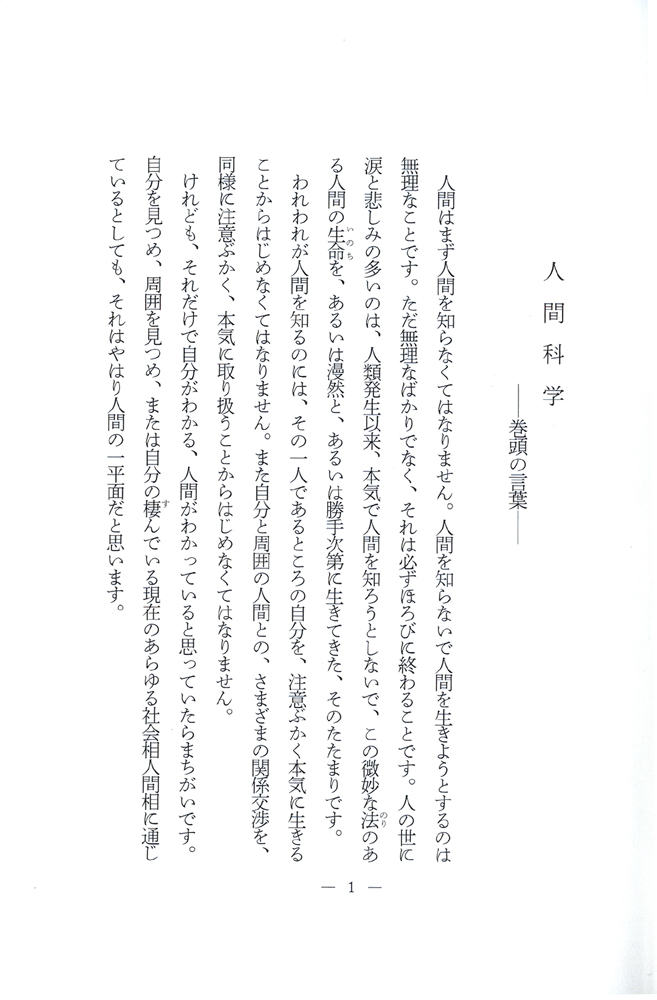 人間科学
――巻頭の言葉――
人間はまず人間を知らなくてはなりません。人間を知らないで人間を生きようとするのは
無理なことです。ただ無理なばかりでなく、それは必ずほろびに終わることです。人の世に
涙と悲しみの多いのは、人類発生以来、本気で人間を知ろうとしないで、この微妙な法のあ
のり
る人間の生命を、あるいは漫然と、あるいは勝手次第に生きてきた、そのたたまりです。
いのち
われわれが人間を知るのには、その一人であるところの自分を、注意ぶかく本気に生きる
ことからはじめなくてはなりません。また自分と周囲の人間との、さまざまの関係交渉を、
同様に注意ぶかく、本気に取り扱うことからはじめなくてはなりません。
けれども、それだけで自分がわかる、人間がわかっていると思っていたらまちがいです。
自分を見つめ、周囲を見つめ、または自分の棲んでいる現在のあらゆる社会相人間相に通じ
す
ているとしても、それはやはり人間の一平面だと思います。
― 1 ―